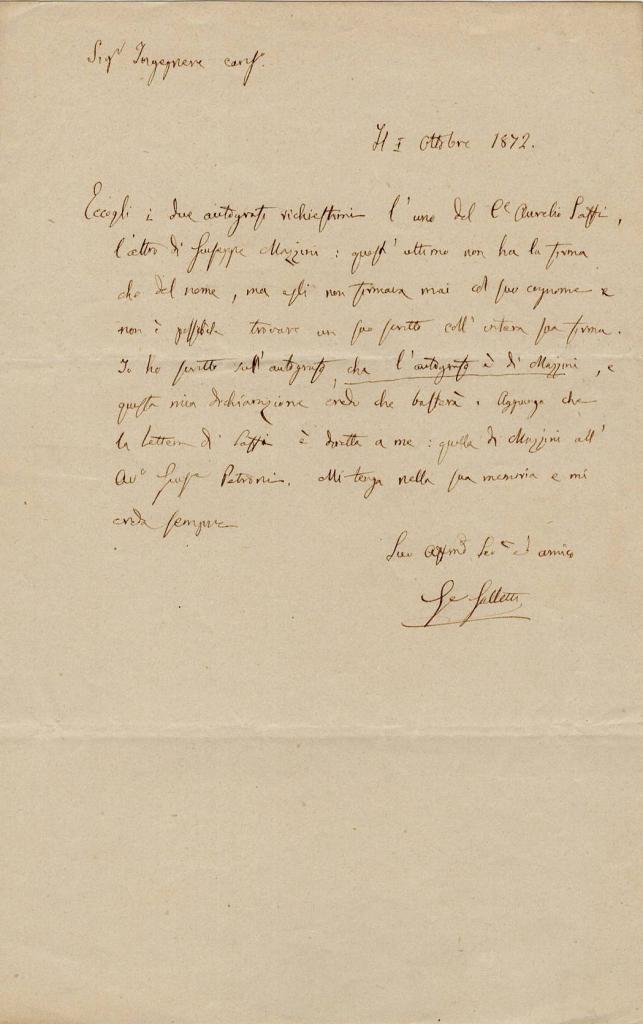 Sigr Ingegnere cariss.
Il I Ottobre 1872.
Eccogli i due autografi richiestimi l'uno del Ce Aurelio Saffi,
l'altro di Giuseppe Mazzini: quest'ultimo non ha la firma
che del nome, ma egli non firmava mai col suo cognome e
non è possibile trovare un suo scritto coll'intera sua firma.
Io ho scritto sull'autografo, che l'autografo è di Mazzini, e
questa mia dichiarazione credo che basterà. Aggiungo che
la lettera di Saffi è diretta a me: quella di Mazzini all'
Avo Giuse Petroni. Mi tenga nella sua memoria e mi
creda sempre
Suo affmo ed amico
Ge Galletti